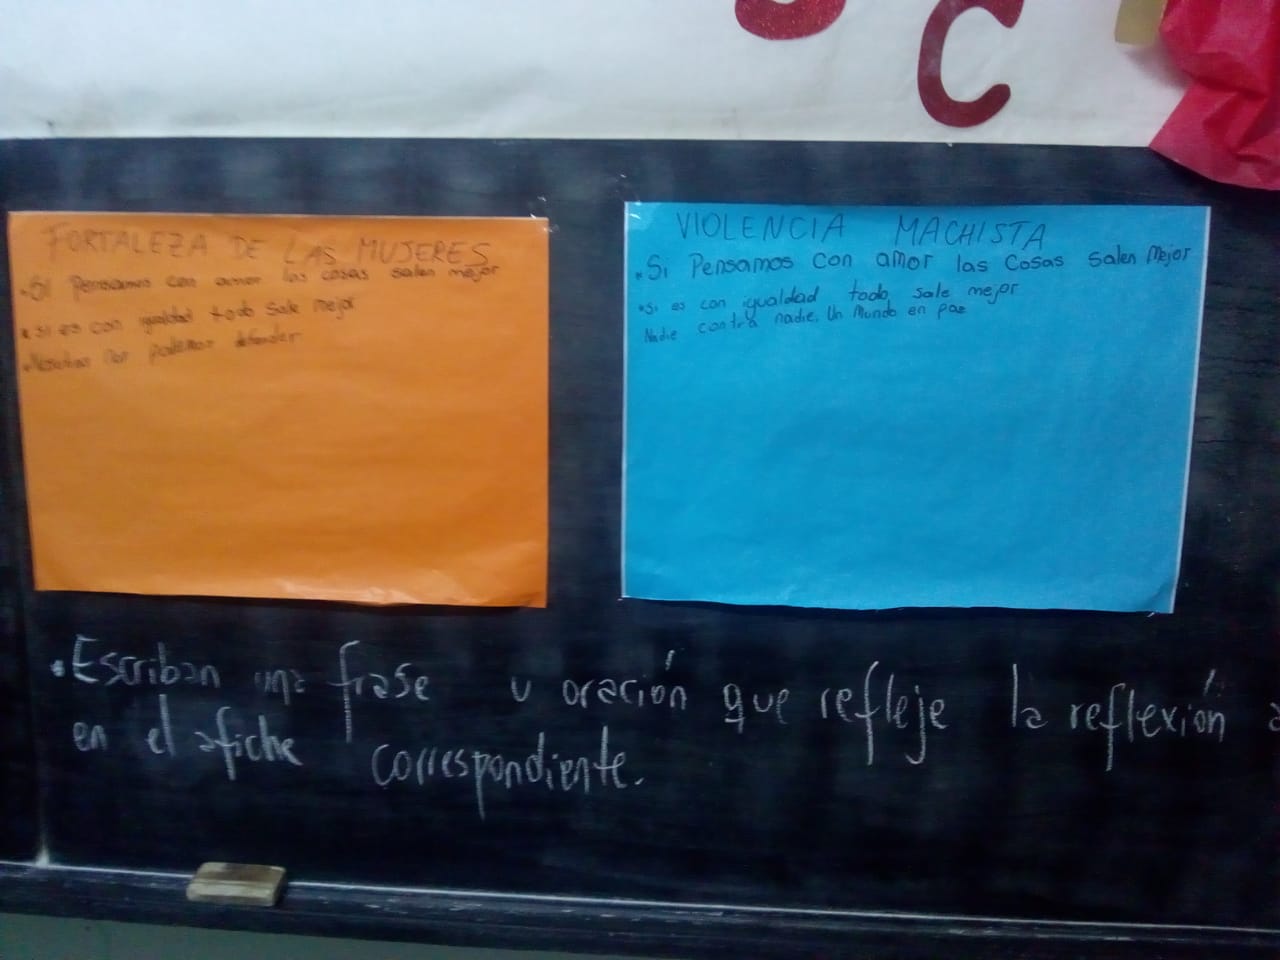 C
FORTALEZA DE LAS MUJERES
• Si Pensamos con amor las cosas salen mejor
• si es con igualdad todo sale mejor
• Nosotras nos podemos defender
VIOLENCIA MACHISTA
• Si Pensamos con amor las Cosas Salen Mejor
• si es con igualdad todo sale mejor
Nadie contra nadie. Un Mundo en paz
• Escriban una frase u oración que refleje la reflexión a
en el afiche correspondiente.